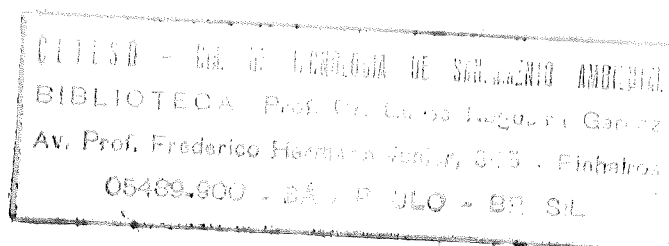 CETESB - CIA. DE TECNOLOGIA DE SANEAMENTO AMBIENTAL
BIBLIOTECA Prof. Dr. Lucas Nogueira Garcez
Av. Prof. Frederico Hermann Junior, 345 - Pinheiros
05489-900 - SÃO PAULO - BRASIL